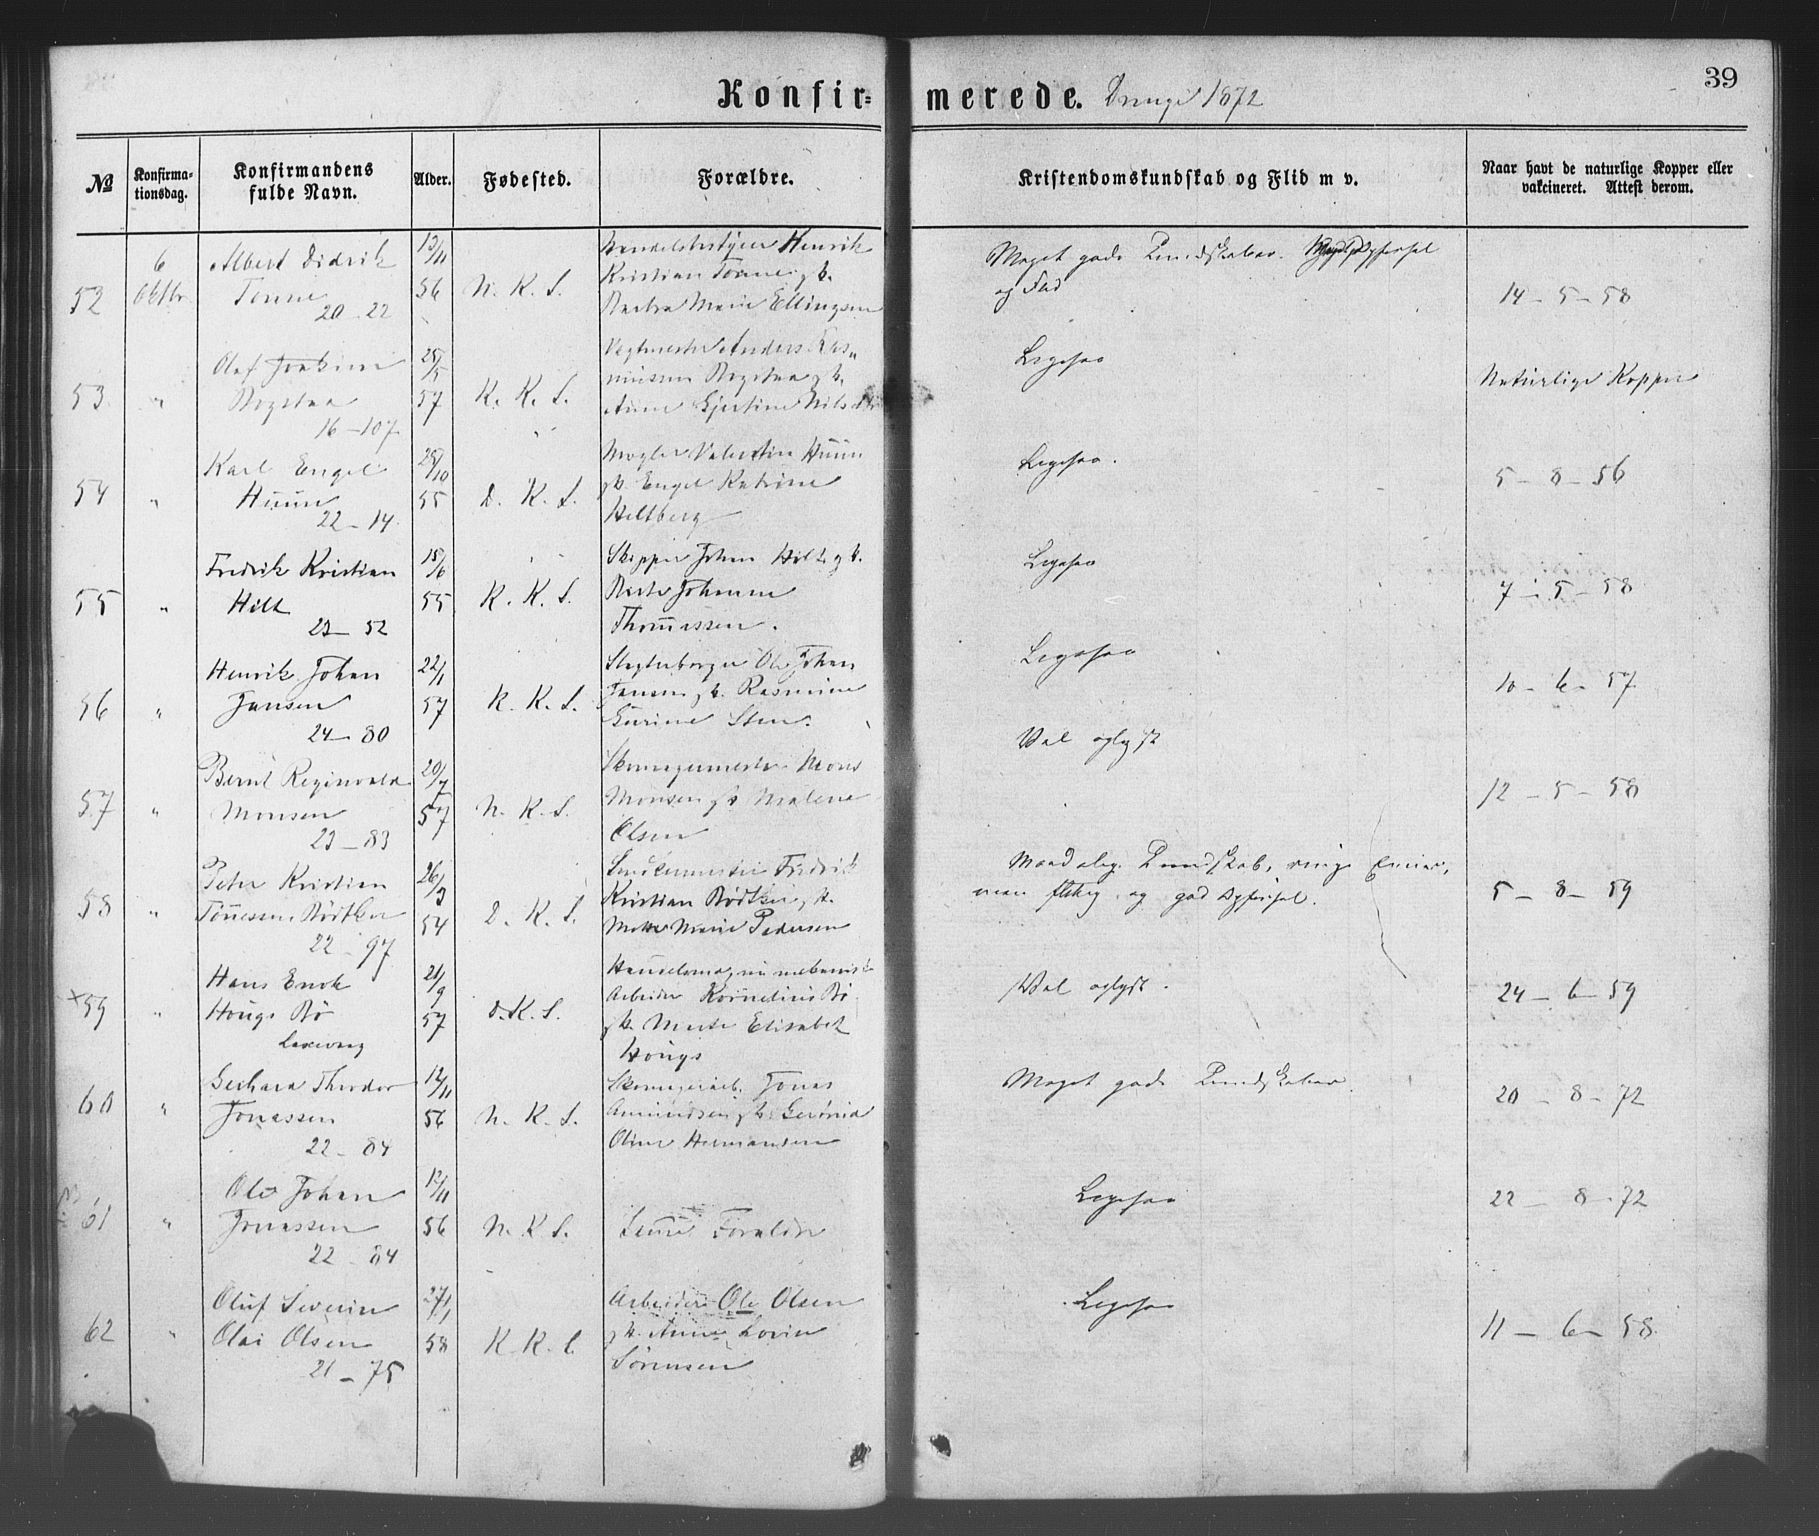 Konfir=merede. Drenge 1872
39
№
Konfirma-
tionsdag.
Konfirmandens
fulde Navn.
Alder.
Fødested.
Forældre.
Kristendomskundskab og Flid m v.
Naar havt de naturlige Kopper eller
vakcineret. Attest derom.
52
6
Oktbr.
Albert Didrik
Tonne
20 - 22
13/11
56
N. K. S.
Handelsbestyrer Henrik
Kristian Tonne og h.
Marie Ellingsen
Meget gode Kundskaber.
og Flid
14 - 5 - 58
53
"
Olaf Joakim
Rogstaa
16 - 107
25/5
57
K. K. S.
Anders Ras„
mussen Rogstaa og h.
Anne Gjertine Nils
Ligesaa
Naturlige Kopper
54
"
Karl Engel
Huun
22 - 14
25/10
55
D. K. S.
Mægler Valentin Huun
og h. Engel Katrine
Heltberg
Ligesaa.
5 - 8 - 56
55
"
Fredrik Kristian
Hilt
23 - 52
15/6
55
K. K. S.
Skipper Johan Hilt og h.
Johanne
Thomassen.
Ligesaa
7 - 5 - 58
56
"
Henrik Johan
Jansen
24 - 80
22/1
57
K. K. S.
Ole Johan
Jansen og h. Rasmine
Gurine Sten.
Ligesaa
10 - 6 - 57
57
"
Bernt Reginvald
Monsen
23 - 83
20/7
57
N. K. S.
Skomagermester Mons
Monsen og h. Malene
Olsen
Vel oplyst
12 - 5 - 58
58
"
Peter Kristian
Tønessen Bødtker
22 - 97
26/3
54
D. K. S.
Fredrik
Kristian Bødtker og h.
Mette Marie Pedersen
Kundskab, ringe
og god Opførsel.
5 - 8 - 59
×59
"
Hans Enok
Hougs Bø
Laxevaag
21/9
57
D. K. S.
Arbeider Kornelius Bø
og h. Marte Elisabet
Hougs
Vel oplyst.
24 - 6 - 59
60
"
Gerhard Theodor
Jonassen
22 - 84
12/11
56
N. K. S.
Skomagerarb. Jonas
Amundsen og h.
Oline Hermansen
Meget gode Kundskaber.
20 - 8 - 72
61
"
Ole Johan
Jonassen
22 - 84
12/11
56
N. K. S.
Samme Forældre
Ligesaa
22 - 8 - 72
62
"
Oluf Severin
Olai Olsen
21 - 75
27/1
58
K. K.
Arbeider Ole Olsen
og h. Anne Lovise
Sørensen
Ligesaa
11 - 6 - 58